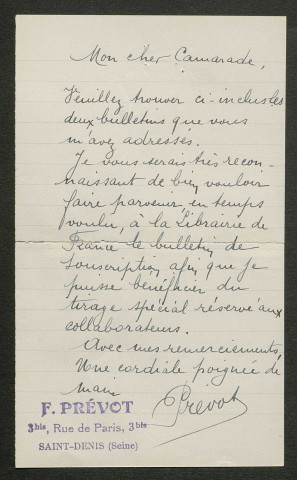 Mon cher Camarade,
Veuillez trouver ci-inclus les
deux bulletins que vous
m'avez adressés.
Je vous serais très recon-
naissant de bien vouloir
faire parvenir en temps
voulu, à la Librairie de
France le bulletin de
souscription afin que je
puisse bénéficier du
tirage spécial réservé aux
collaborateurs.
Avec mes remerciements,
Une cordiale poignée de
main
Prévot
F. PRÉVOT
3bis, Rue de Paris, 3bis
SAINT-DENIS (Seine)